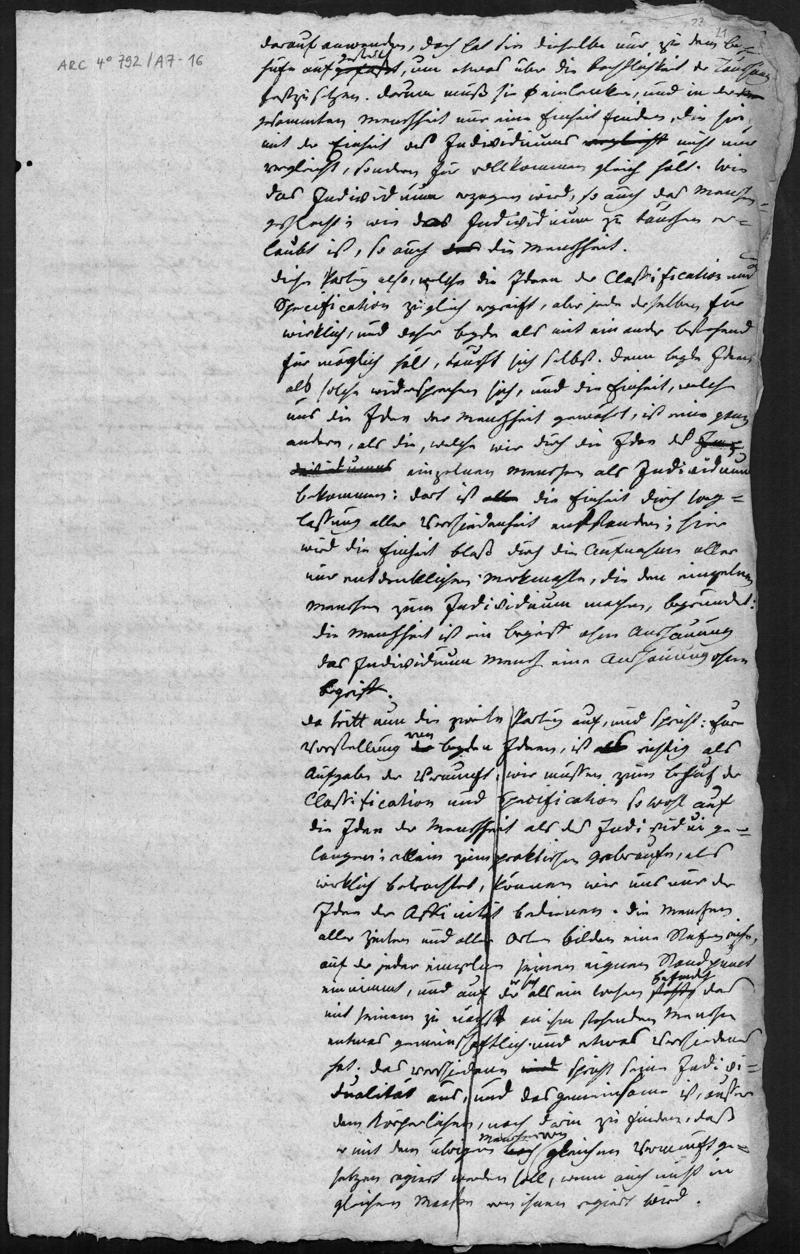 ARC 4° 792/A7-16
23
21
darauf anwenden, doch hat sie dieselbe nur zu dem Be-
hufe aufgestellt, um etwas über die Rechtlichkeit der Täuschung
festzusetzen. Darum muß sie einlenken, und in der
gesammten Menschheit nur eine Einheit finden, die sie
mit der Einheit des Individuums nicht nur
vergleicht, sondern für vollkommen gleich hält. Wie
das Individuum erzogen wird, so auch das Menschen-
geschlecht; wie das Individuum zu täuschen er-
laubt ist, so auch die Menschheit.
Diese Partey also, welche die Ideen der Classification und
Specification zugleich ergreift, aber jede derselben für
wirklich, und daher beyde als mit einander bestehend
für möglich hält, täuscht sich selbst. Denn beyde Ideen
als solche widersprechen sich, und die Einheit, welche
uns die Idee der Menschheit gewährt, ist eine ganz
andere, als die, welche wir durch die Idee des Indi-
viduums einzelnen Menschen als Individuum
bekommen: dort ist die Einheit durch Weg-
lassung aller Verschiedenheit entstanden; hier
wird die Einheit bloß durch die Aufnahme aller
nur entdenklichen Merkmahle, die den einzelnen
Menschen zum Individuum machen, begründet:
die Menschheit ist ein Begriff ohne Anschauung
das Individuum Mensch eine Anschauung ohne
Begriff.
Da tritt nun die zweite Partey auf, und spricht: Eure
Vorstellung von beyden Ideen, ist richtig als
Aufgabe der Vernunft, wir müssen zum Behuf der
Classification und Specification so wohl auf
die Idee der Menschheit als des Individui ge-
langen; allein zum praktischen Gebrauche, als
wirklich betrachtet, können wir uns nur der
Idee der Affinität bedienen. Die Menschen
aller Zeiten und aller Orten bilden eine Stufenreihe,
auf der jeder einzelne seinen eignen Standpunct
einnimmt, und auf der er als ein Wesen befindet das
mit seinem zu nächst an ihm stehenden Menschen
etwas gemeinschaftliches und etwas verschiedenes
hat; das verschiedene spricht seine Indivi-
dualität aus, und das gemeinsame ist, außer
dem Körperlichen, noch darin zu finden, daß
er mit dem übrigen Menschen von gleichen Vernunftge-
setzen regiert werden soll, wenn auch nicht in
gleichem Maaße von ihnen regiert wird.